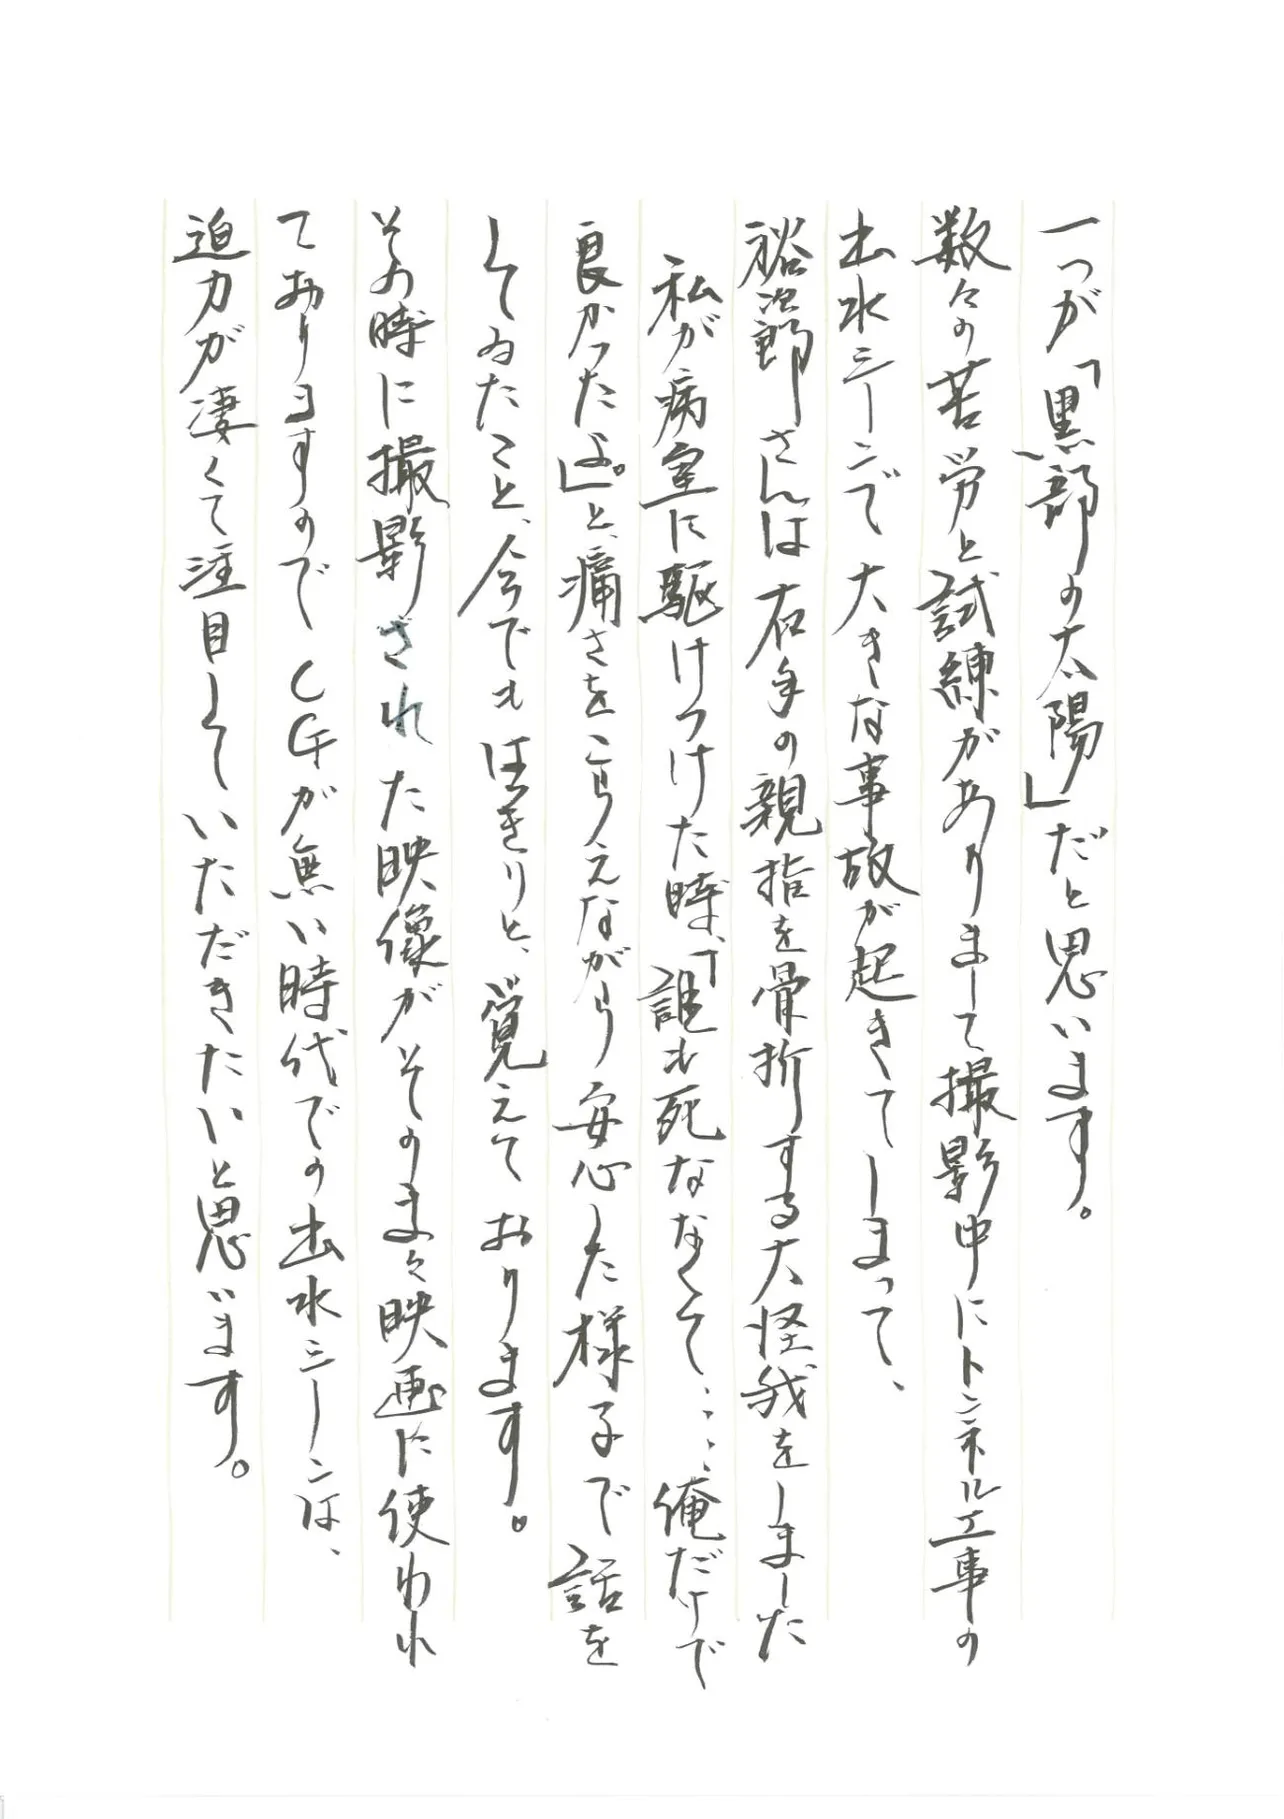 一つが「黒部の太陽」だと思います。
数々の苦労と試練がありまして撮影中にトンネル工事の
出水シーンで大きな事故が起きてしまって、
裕次郎さんは右手の親指を骨折する大怪我をしました
私が病室に駆けつけた時、「誰も死ななくて……俺だけで
良かったよ。」と、痛さをこらえながら安心した様子で話を
してゐたこと、今でもはっきりと、覚えております。
その時に撮影された映像がそのまゝ映画に使われ
ておりますのでCGが無い時代での出水シーンは、
迫力が凄くて注目していただきたいと思います。